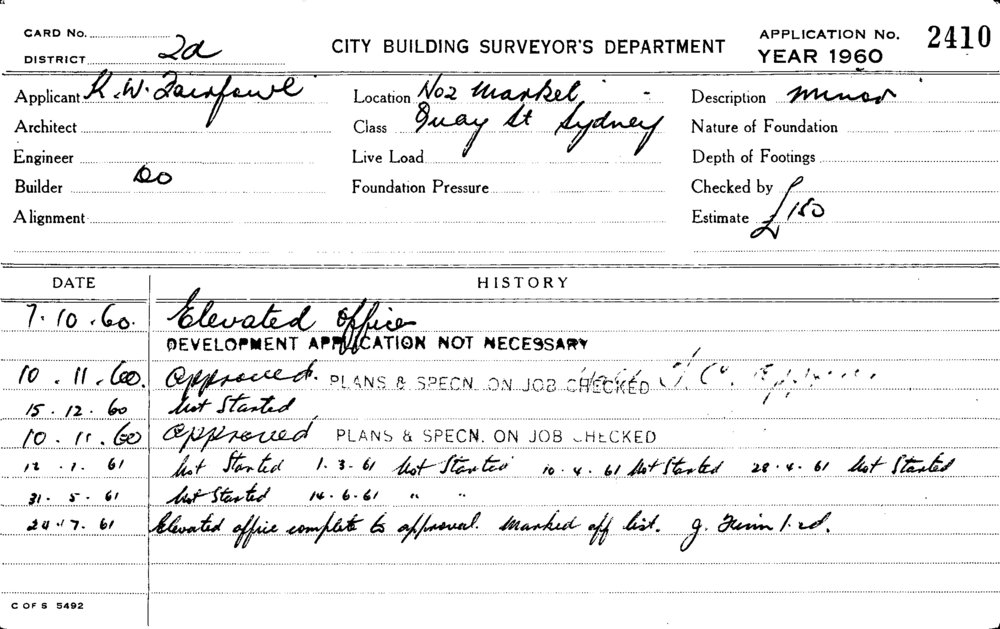 CARD No.
DISTRICT 2d
CITY BUILDING SURVEYOR'S DEPARTMENT
APPLICATION No. 2410
YEAR 1960
Applicant K. W. Fairfowl
Location No2 Market,
Description Minor
Architect
Class Quay St Sydney
Nature of Foundation
Engineer
Live Load
Depth of Footings
Builder Do
Foundation Pressure
Checked by
Alignment
Estimate £150
DATE HISTORY
7.10.60. Elevated office
DEVELOPMENT APPLICATION NOT NECESSARY
10.11.60. Approved. PLANS & SPECN. ON JOB CHECKED
15.12.60 Not Started
10.11.60 Approved PLANS & SPECN. ON JOB CHECKED
12.1.61 Not Started 1.3.61 Not Started 10.4.61 Not Started 28.4.61 Not Started
31.5.61 Not Started 14.6.61 " "
24.7.61 Elevated office complete to approval. Marked off list. J.
C OF S 5492